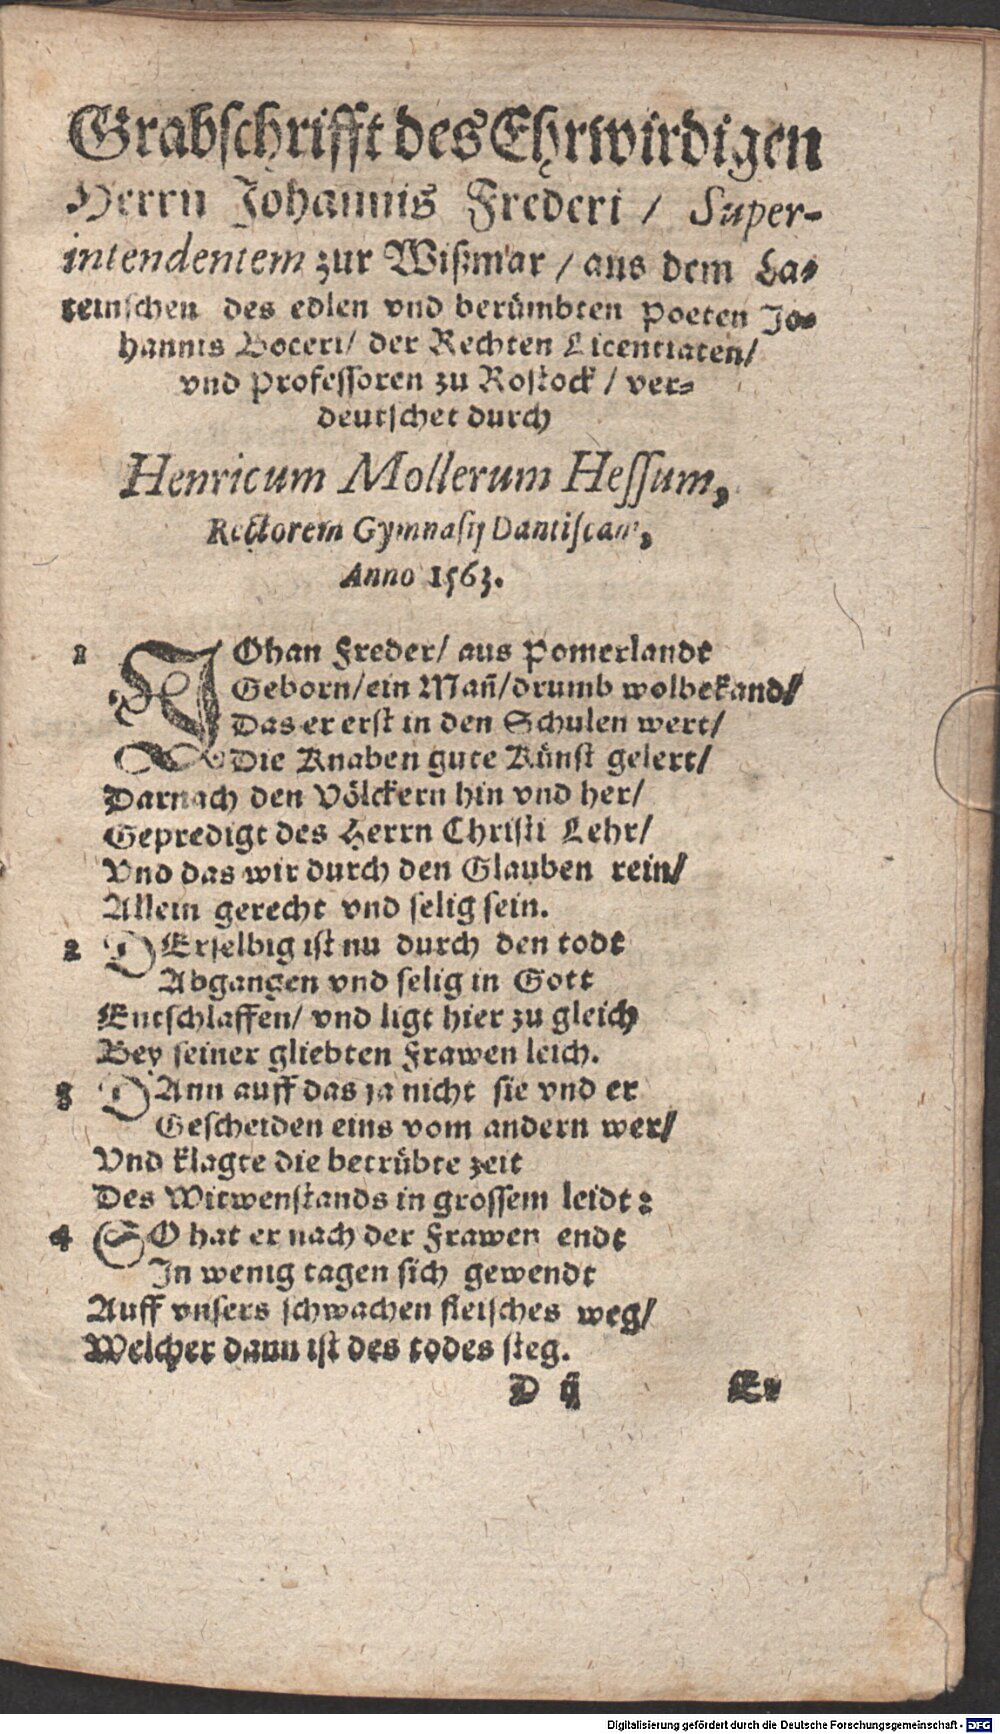 Grabschrifft des Ehrwirdigen
Herrn Johannis Frederi / Super-
intendentem zur Wißmar / aus dem La-
teinschen des edlen vnd berümbten Poeten Jo-
hannis Boceri / der Rechten Licentiaten /
vnd Professoren zu Rostock / ver-
deutschet durch
Henricum Mollerum Hessum,
Rectorem Gymnasij Dantiscani,
Anno 1563.
1 JOhan Freder / aus Pomerlandt
Geborn / ein Mañ / drumb wolbekand /
Das er erst in den Schulen wert /
Die Knaben gute Künst gelert /
Darnach den Völckern hin vnd her /
Gepredigt des Herrn Christi Lehr /
Vnd das wir durch den Glauben rein /
Allein gerecht vnd selig sein.
2 DErselbig ist nu durch den todt
Abgangen vnd selig in Gott
Entschlaffen / vnd ligt hier zu gleich
Bey seiner gliebten Frawen leich.
3 DAnn auff das ja nicht sie vnd er
Gescheiden eins vom andern wer /
Vnd klagte die betrübte zeit
Des Witwenstands in grossem leidt:
4 SO hat er nach der Frawen endt
In wenig tagen sich gewendt
Auff vnsers schwachen fleisches weg /
Welcher dann ist des todes steg.
D ij Er
Digitalisierung gefördert durch die Deutsche Forschungsgemeinschaft - DFG